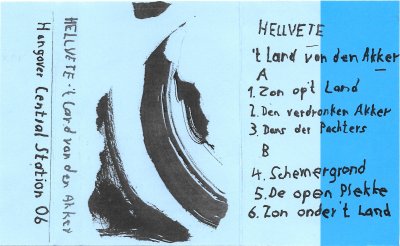 Hangover Central Station 06
HELLVETE - 't Land van den Akker
HELLVETE
't Land van den Akker
A
1. Zon op't Land
2. Den verdronken Akker
3. Dans der Pachters
B
4. Schemergrond
5. De open Plekke
6. Zon onder 't Land